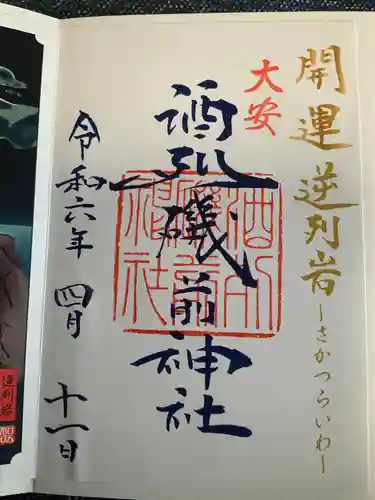 開運 逆列岩
ーさかつらいわー
大安
酒列磯前神社
令和六年 四月 十一日
逆列岩